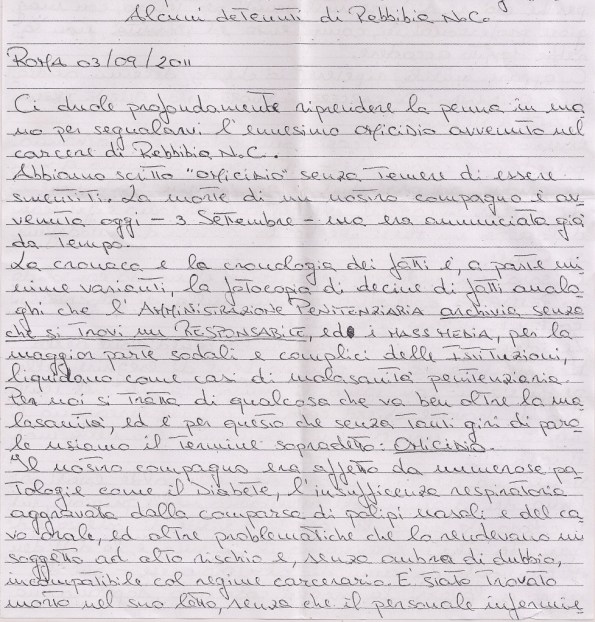 Alcuni detenuti di Rebbibia N.C.
ROMA 03/09/2011
Ci duole profondamente riprendere la penna in ma
no per segnalarvi l'ennesimo omicidio avvenuto nel
carcere di Rebbibia N.C.
Abbiamo scitto "omicidio" senza temere di essere
smentiti. La morte di un nostro compagno è av
venuta oggi - 3 Settembre - ma era annunciata già
da Tempo.
La cronaca e la cronologia dei fatti è, a parte mi
nime varianti, la fotocopia di decine di fatti analo
ghi che l'AMMINISTRAZIONE PENITENZIARIA archivia senza
che si trovi un RESPONSABILE, ed i MASS MEDIA, per la
maggior parte sodali e complici delle Istituzioni,
liquidano come casi di malasanità penitenziaria.
Per noi si tratta di qualcosa che va ben oltre la ma
lasanità, ed è per questo che senza tanti giri di paro
le usiamo il termine sopradetto: Omicidio.
Il nostro compagno era affetto da numerose pa
tologie come il Diabete, l'insufficenza respiratoria
aggravata dalla comparsa di polipi nasali e del ca
vo orale, ed altre problematiche che lo rendevano un
soggetto ad alto rischio e, senza ombra di dubbio,
incompatibile col regime carcerario. E' stato trovato
morto nel suo letto, senza che il personale infermie